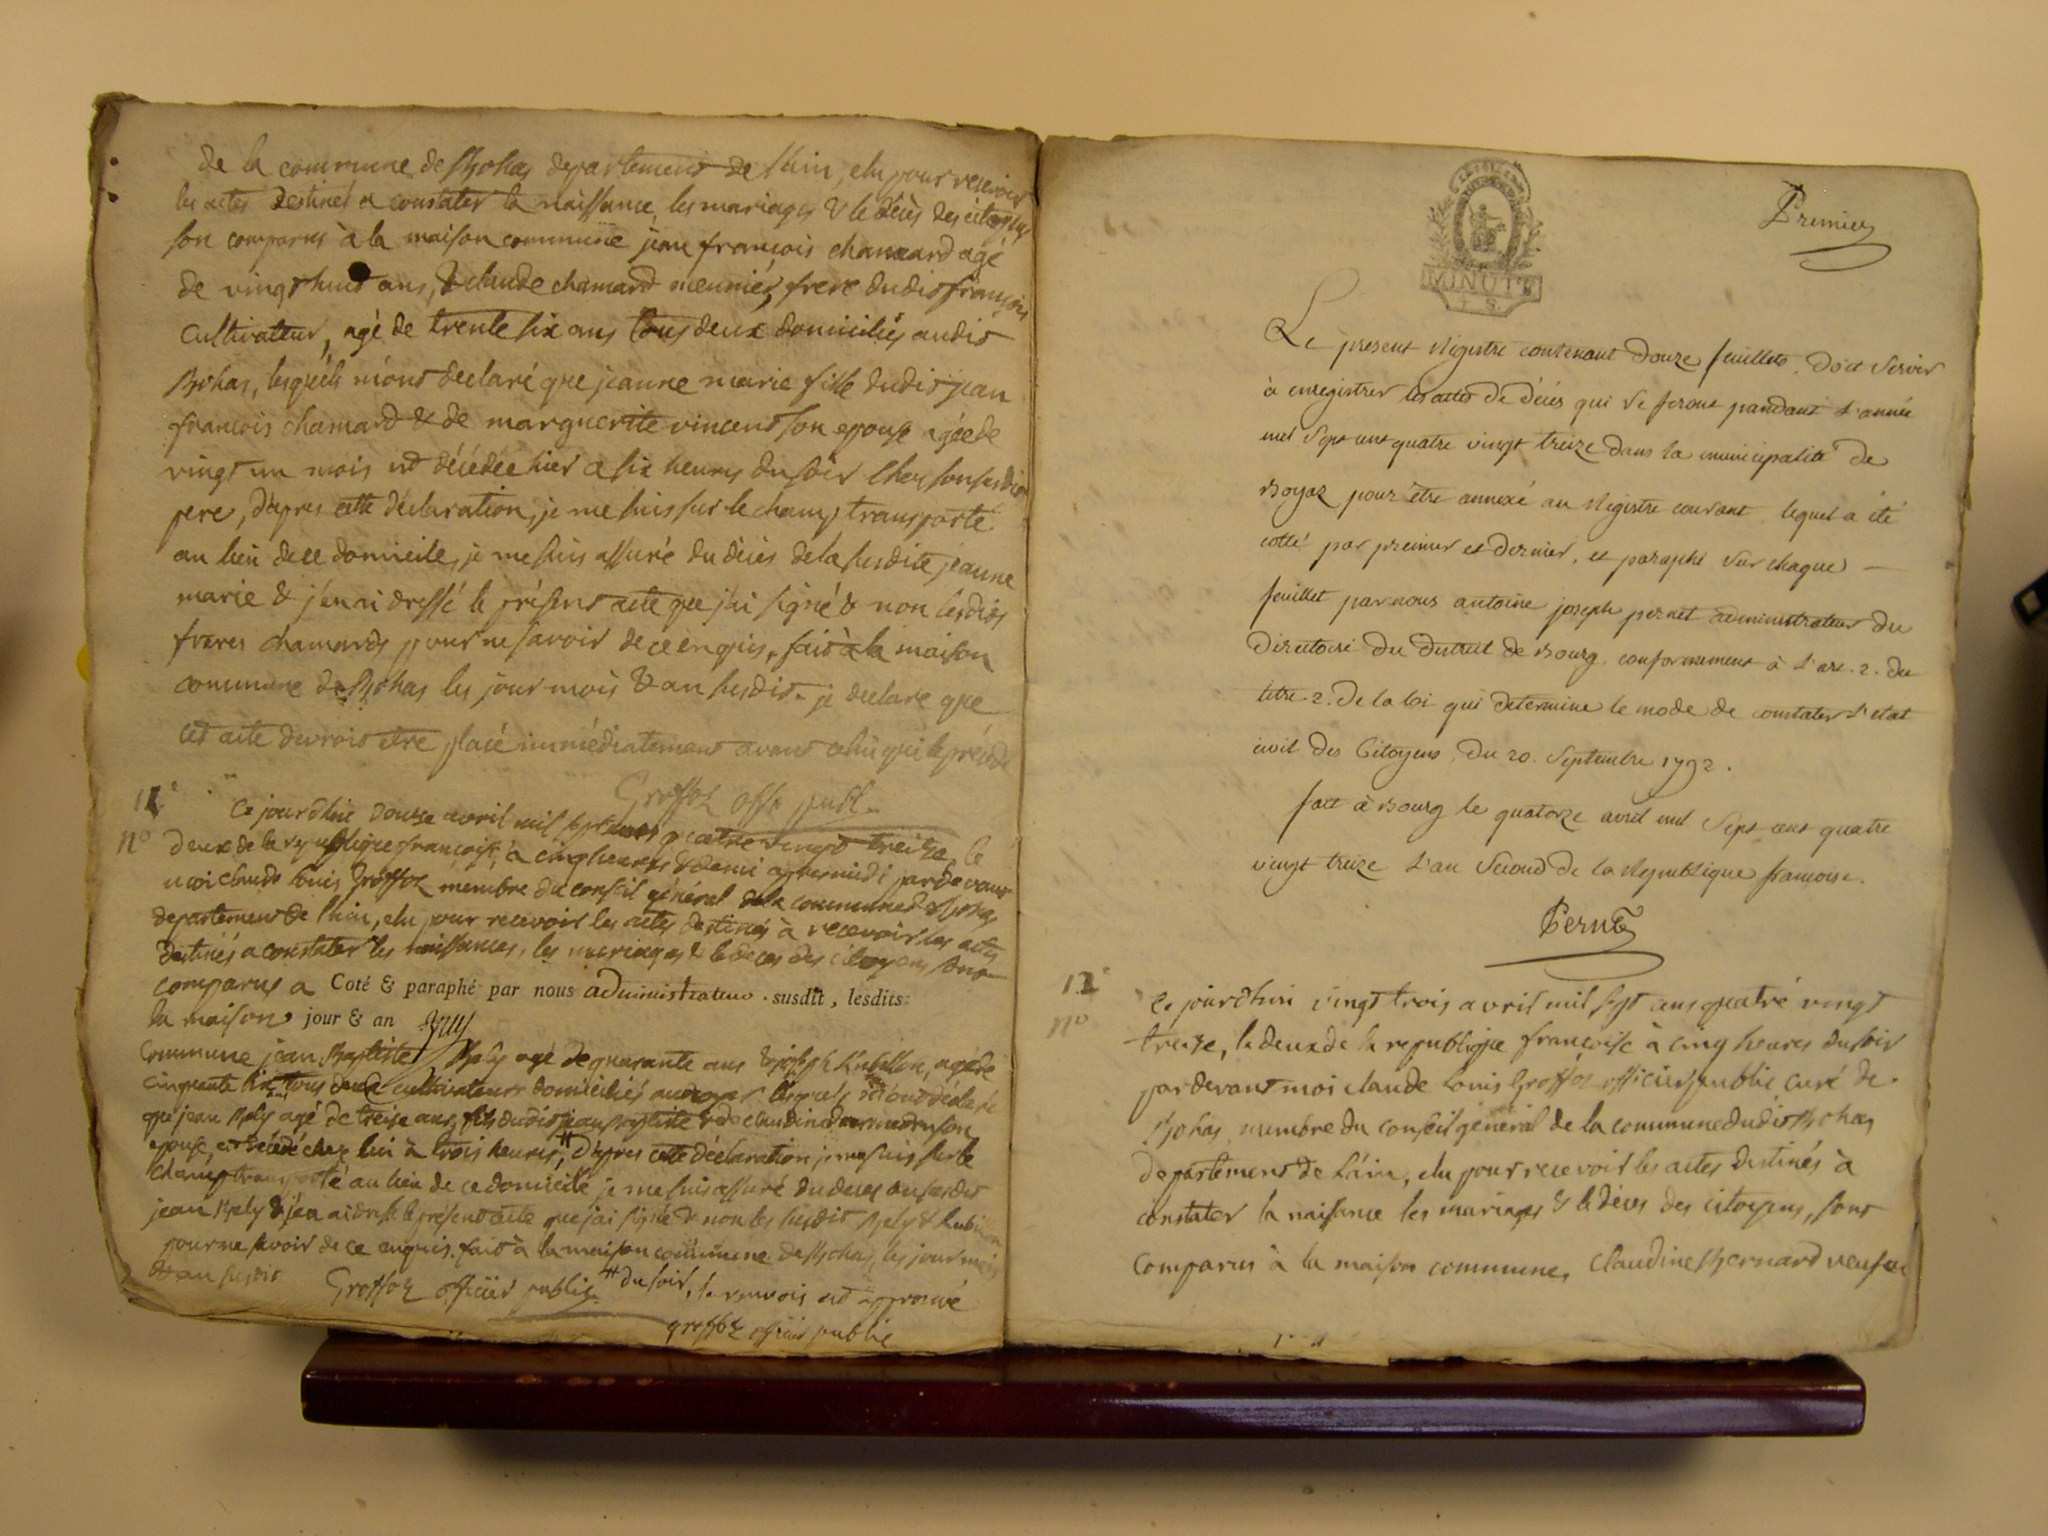 de la commune de Bohas departement de l'ain, elu pour recevoir
les actes destinés a constater la naissance, les mariages & le décès des citoyens
son comparus à la maison commune jean françois chamard agé
de vingt huit ans, & claude chamard meunier, frere dudit françois
cultivateur, agé de trente six ans tous deux domiciliés audit
Bohas, lesquels m'ont declaré que jeanne marie fille dudit jean
françois chamard & de marguerite vincent son epouse agée de
vingt un mois est décédée hier a six heures du soir chez son susdit
pere, d'apres cette déclaration, je me suis sur le champ transporté
au lieu de ce domicile, je me suis assuré du décès de la susdite jeanne
marie & j'en ai dressé le présent acte que j'ai signé & non lesdits
freres chamards pour ne savoir de ce enquis, fait à la maison
commune de Bohas les jour mois & an susdit. je declare que
cet acte devroit etre placé immédiatement avant celui qui le précède
Groffoz offi publ.
11e
n°
Ce jourdhui douse avril mil sept cent quatre vingt treize, le
deux de la republique françoise, à cinq heures & demi apres midi par devant
moi claude louis Groffoz membre du conseil général de la commune de Bohas
departement de l'ain, elu pour recevoir les actes destinés à recevoir les actes
destinés a constater les naissances, les mariages & le deces des citoyens sont
comparus a Coté & paraphé par nous administrateur susdit, lesdits
la maison jour & an
commune jean Baptiste Bely agé de quarante ans & joseph Rubillon, agé de
cinquante six, tous deux cultivateurs domiciliés lesquels m'ont déclaré
que jean Bely agé de treise ans, fils dudit jean Baptiste & de claudine son
epouse, est décédé chez lui à trois heures,# d'apres cette déclaration je me suis sur le
champ transporté au lieu de ce domicile je me suis assuré du deces du susdit
jean Bely & j'en ai dressé le présent acte que j'ai signé & non les susdit Bely & Rubillon
pour ne savoir de ce enquis. fait à la maison commune de Bohas, les jour mois
& an susdit Groffoz officier public # du soir, le renvois est approuvé
groffoz officier public
MINUTE
Premier
Le present Registre contenant douze feuillets, doit servir
à enregistrer les actes de décès qui se feront pendant l'année
mil sept cent quatre vingt treize dans la municipalité de
Boyaz pour être annexé au Registre courant lequel a été
cotté par premier et dernier, et paraphé sur chaque
feuillet par nous antoine joseph pernet administrateur du
Directoire du district de Bourg, conformement à l'art. 2. du
titre 2. de la loi qui determine le mode de constater l'etat
civil des Citoyens, du 20. Septembre 1792.
fait à Bourg le quatorze avril mil sept cent quatre
vingt treize l'an second de la Republique francoise.
Pernet
12e
n°
Ce jourdhui vingt trois avril mil sept cens quatre vingt
treize, le deux de la republique françoise à cinq heures du soir
par devant moi claude Louis Groffoz officier public curé de
Bohas, membre du conseil général de la commune dudit Bohas
departement de L'ain, elu pour recevoir les actes destinés à
constater la naissance les mariages & le décès des citoyens, sont
comparus à la maison commune, Claudine Bernard veufve